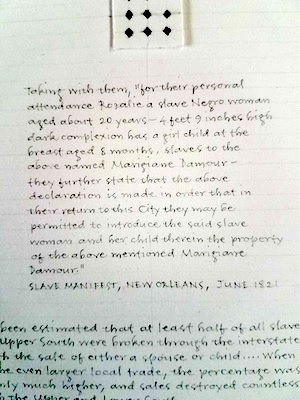 Taking with them, "for their personal
attendance Rozalie a slave Negro woman
aged about 20 years – 4 feet 9 inches high
dark complexion has a girl child at the
breast aged 8 months, slaves to the
above named Marigiane Damour –
they further state that the above
declaration is made in order that in
their return to this City they may be
permitted to introduce the said slave
woman and her child therein the property
of the above mentioned Marigiane
Damour."
SLAVE MANIFEST, NEW ORLEANS, JUNE 1821
been estimated that at least half of all slave
Upper South were broken through the interstate
the sale of either a spouse or child.... When
he even larger local trade, the percentage was
nly much higher, and sales destroyed countless
The Upper and Lower